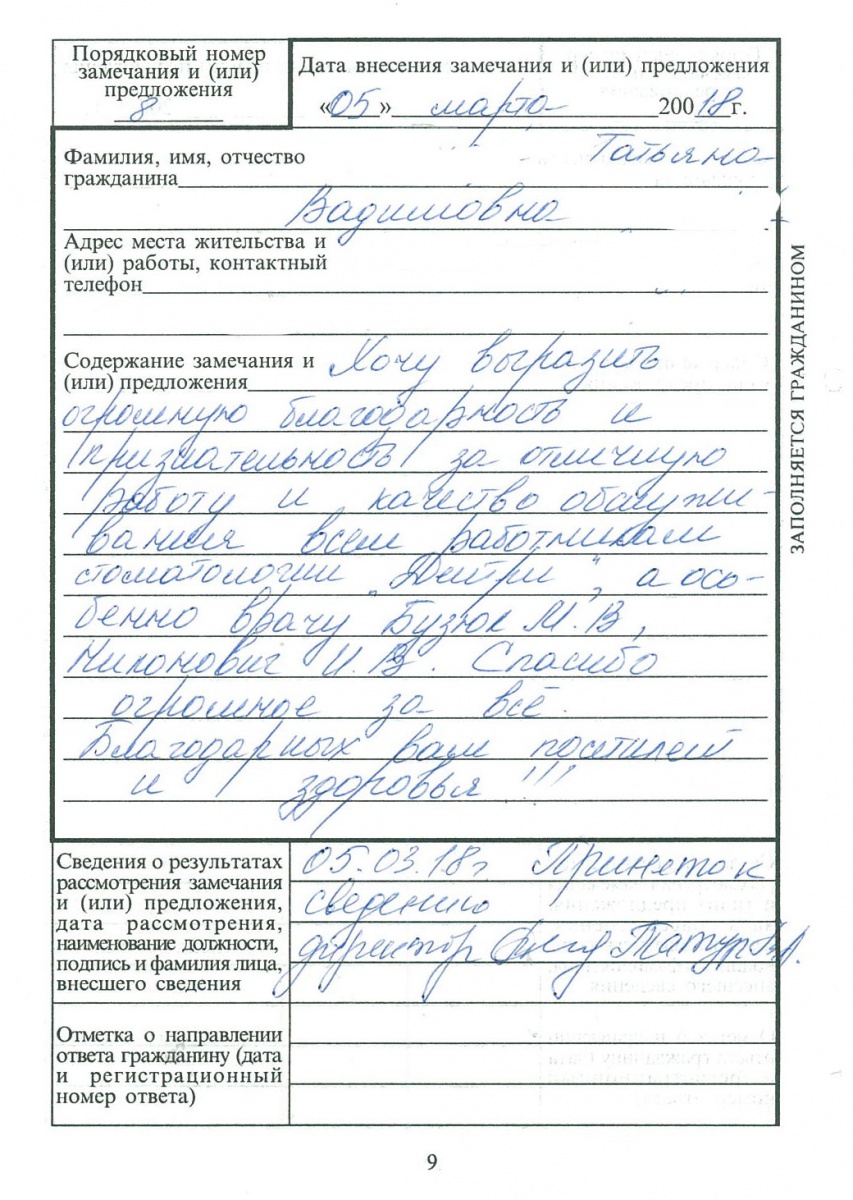 Порядковый номер
замечания и (или)
предложения
8
Дата внесения замечания и (или) предложения
«05» марта 200 18 г.
Фамилия, имя, отчество
гражданина Татьяна
Вадимовна
Адрес места жительства и
(или) работы, контактный
телефон
Содержание замечания и
(или) предложения Хочу выразить
огромную благодарность и
признательность за отличную
работу и качество обслужи-
вания всем работникам
стоматологии „Дентри", а осо-
бенно врачу Бузюк М.В,
Никонович И.В. Спасибо
огромное за всё.
Благодарных вам посетителей
и здоровья!!!
ЗАПОЛНЯЕТСЯ ГРАЖДАНИНОМ
Сведения о результатах
рассмотрения замечания
и (или) предложения,
дата рассмотрения,
наименование должности,
подпись и фамилия лица,
внесшего сведения
05.03.18г Принято к
сведению
директор Татур В.А.
Отметка о направлении
ответа гражданину (дата
и регистрационный
номер ответа)
9